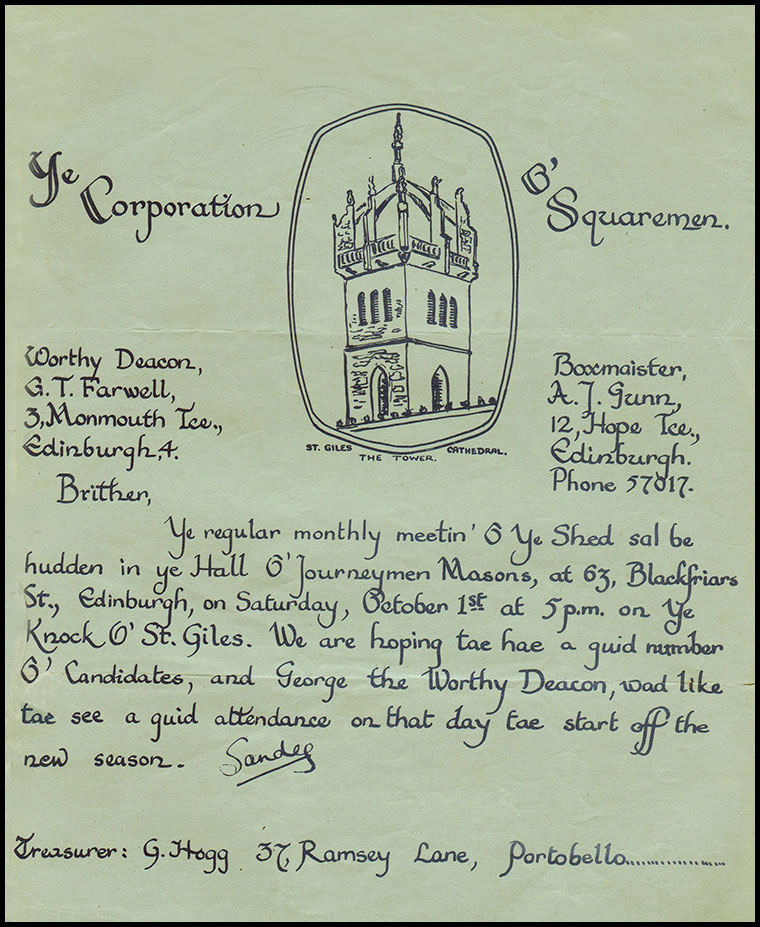 Ye Corporation O' Squaremen.
Worthy Deacon,
G. T. Farwell,
3, Monmouth Tce.,
Edinburgh, 4.
Boxmaister,
A. J. Gunn,
12, Hope Tce.,
Edinburgh.
Phone 57017.
ST. GILES CATHEDRAL.
THE TOWER.
Brither,
Ye regular monthly meetin' O' Ye Shed sal be
hudden in ye Hall O' Journeymen Masons, at 63, Blackfriars
St., Edinburgh, on Saturday, October 1st at 5 p.m. on Ye
Knock O' St. Giles. We are hoping tae hae a guid number
O' Candidates, and George the Worthy Deacon, wad like
tae see a guid attendance on that day tae start off the
new season. Sandy
Treasurer: G. Hogg 37, Ramsey Lane, Portobello..............